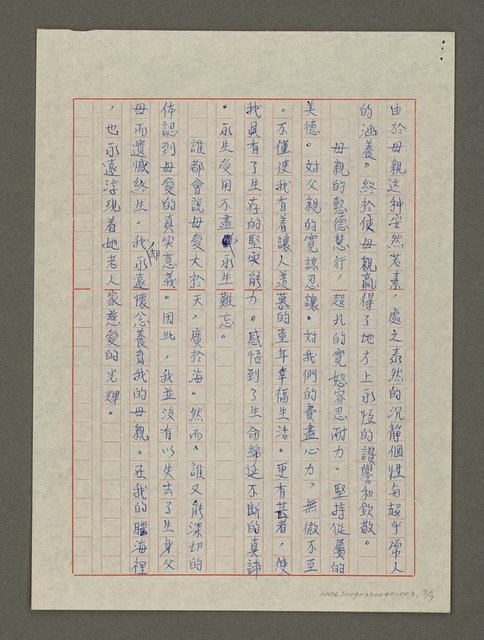 由於母親这种安然若素，處之泰然的沉靜個性與超乎常人
的涵養。終於使母親贏得了地方上永恆的讚譽和欽敬。
母親的懿德慧行，超凡的寬恕容忍耐力。堅持從屬的
美德。对父親的寬諒忍讓。对我們的費盡心力，無微不至
。不僅使我有着讓人羨慕的童年幸福生活。更有甚者，使
我具有了生存的堅实能力。感悟到了生命綿延不斷的真諦
。永生受用不盡，永生難忘。
誰都會說母愛大於天，廣於海。然而，誰又能深切的
体認到母愛的真实意義。因此，我並没有以失去了生身父
母而遺憾終生。我却永遠懷念養育我的母親。在我的腦海裡
，也永遠浮現着她老人家慈愛的光輝。